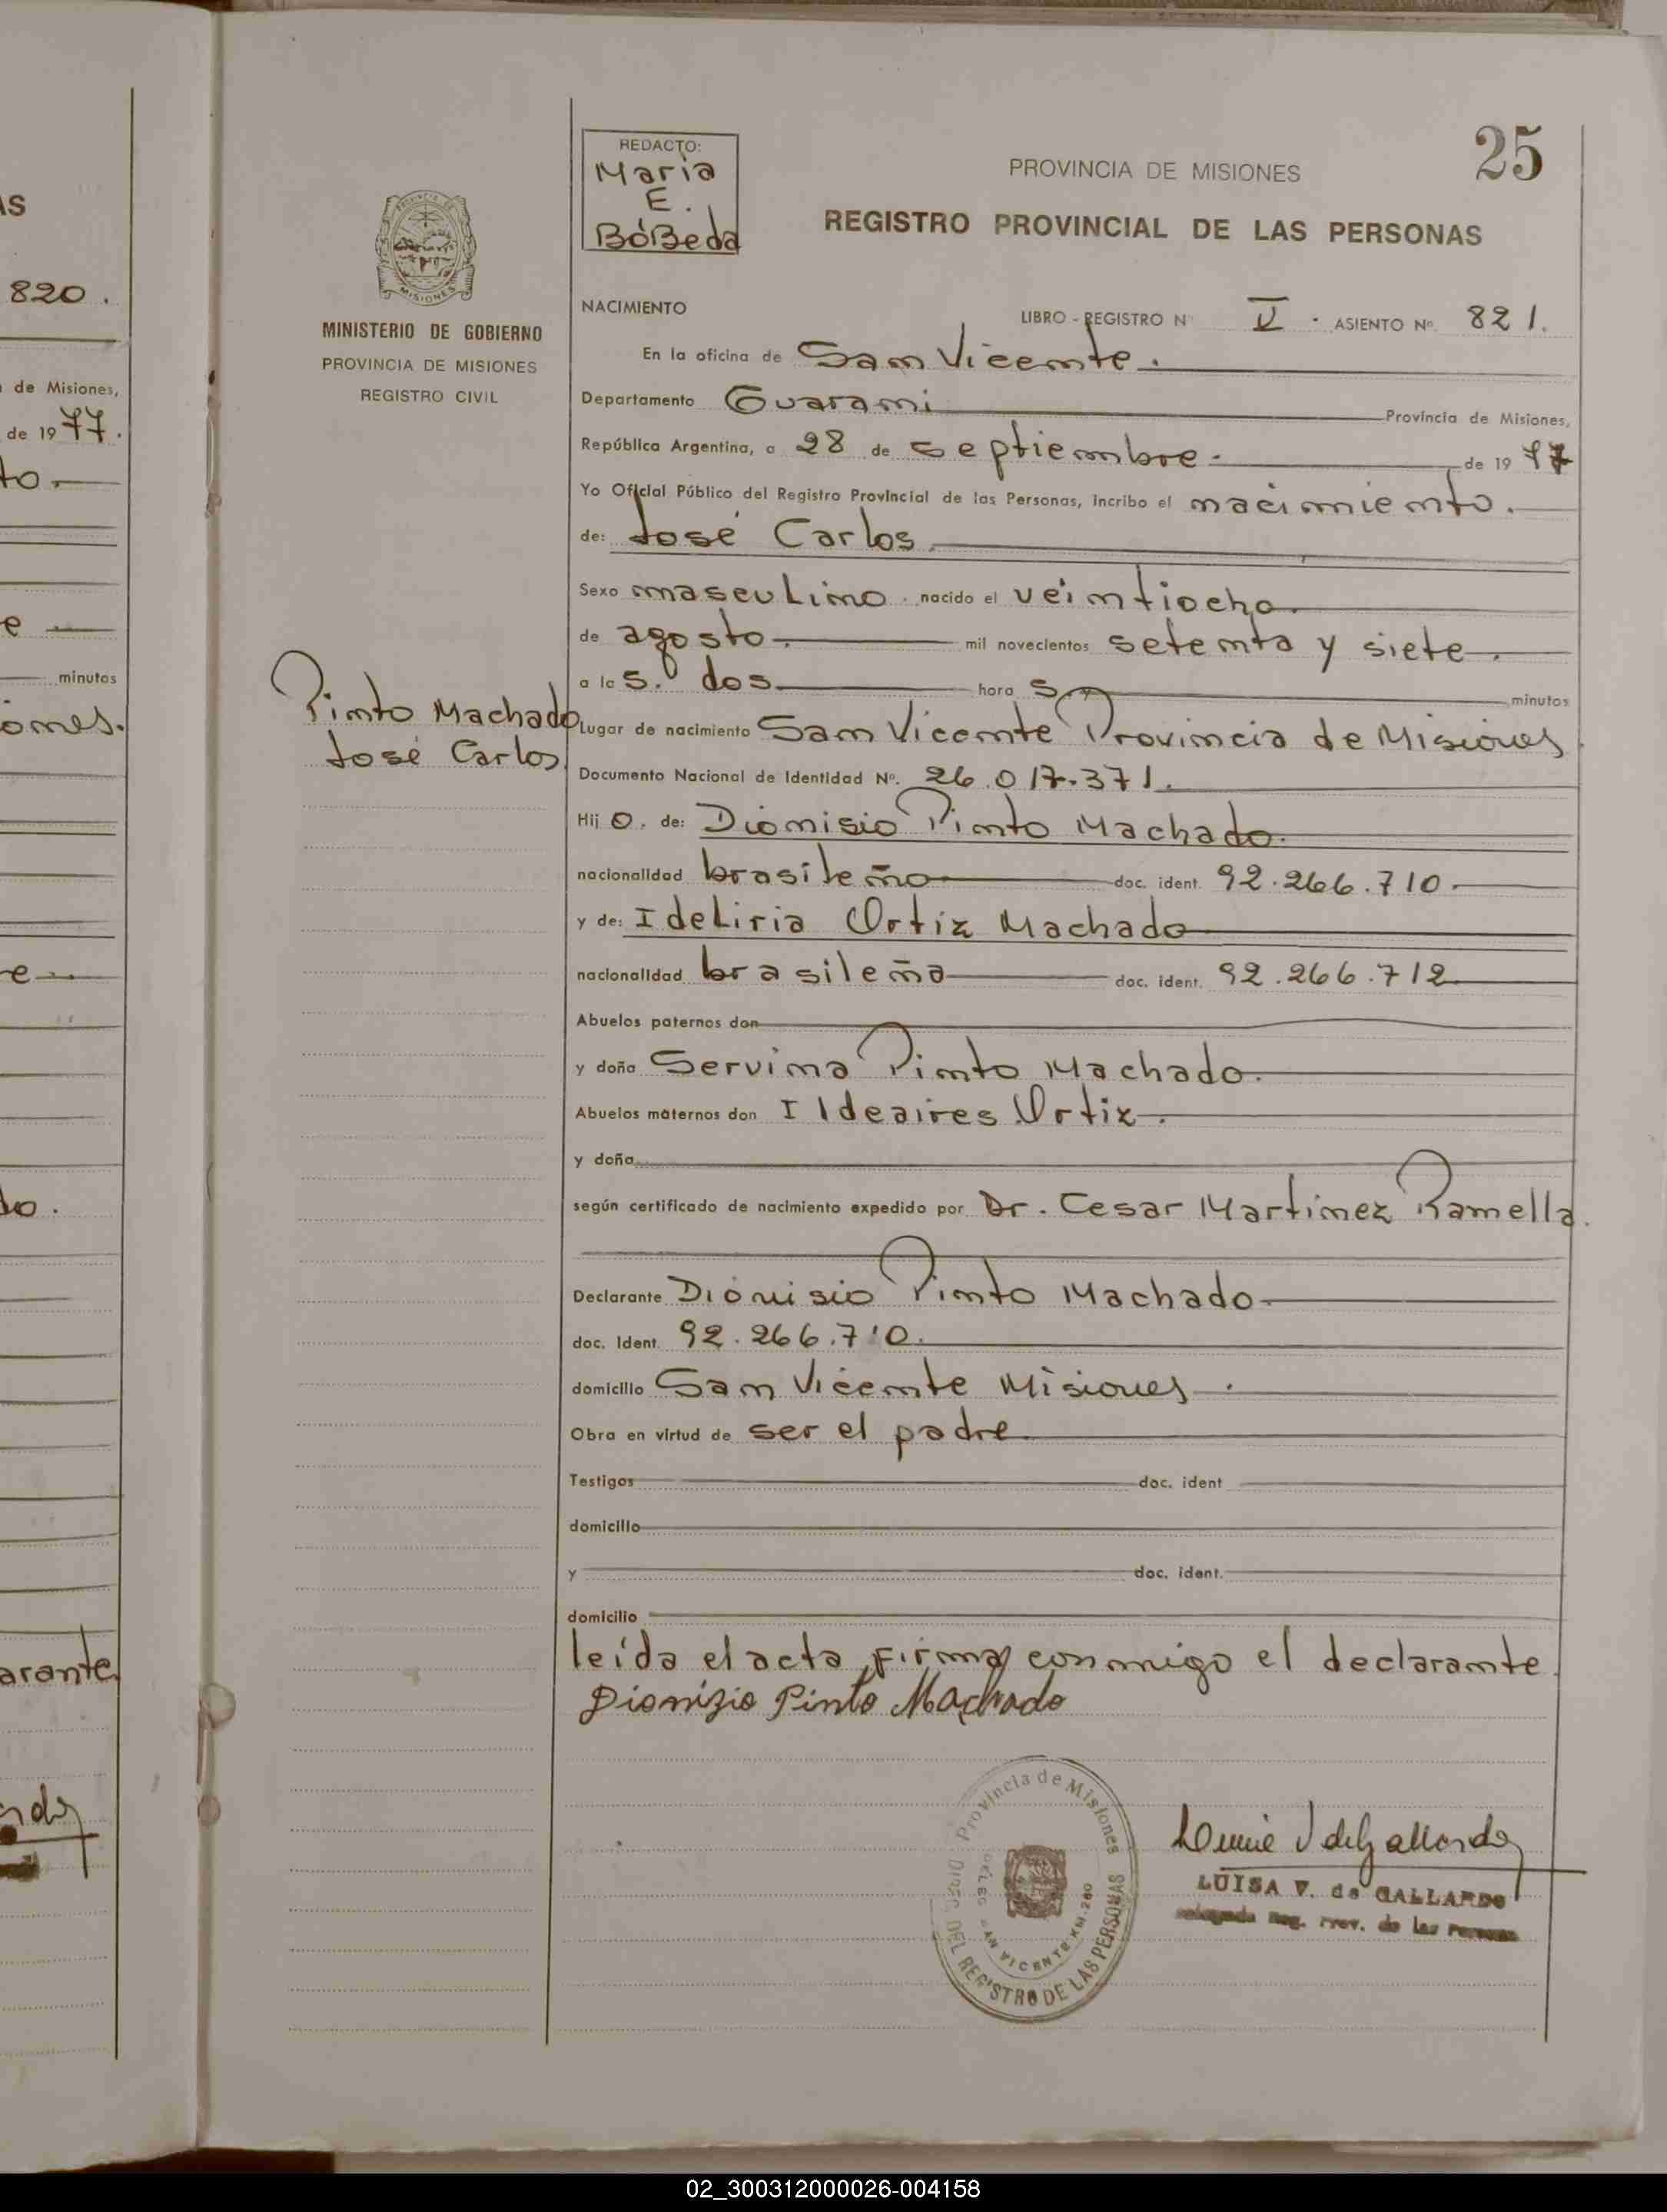 AS
820.
de Misiones,
de 1977.
to
e
minutos
iones.
e
do.
arante
25
REDACTO:
Maria
E.
BóBeda
PROVINCIA DE MISIONES
REGISTRO PROVINCIAL DE LAS PERSONAS
MISIONES
MINISTERIO DE GOBIERNO
PROVINCIA DE MISIONES
REGISTRO CIVIL
NACIMIENTO
LIBRO - REGISTRO N° V. ASIENTO No. 821.
En la oficina de San Vicente.
Departamento Guarani Provincia de Misiones,
República Argentina, a 28 de septiembre. de 1977
Yo Oficial Público del Registro Provincial de las Personas, incribo el nacimiento.
de: José Carlos.
Sexo masculino. nacido el veintiocho.
de agosto. mil novecientos setenta y siete.
a las. dos hora s minutos
Pinto Machado
José Carlos
Lugar de nacimiento San Vicente Provincia de Misiones
Documento Nacional de Identidad No. 26.017.371.
Hijo. de: Dionisio Pinto Machado.
nacionalidad brasileño doc. ident. 92.266.710.
y de: Ideliria Ortiz Machado
nacionalidad brasileña doc. ident. 92.266.712
Abuelos paternos don
y doña Servina Pinto Machado.
Abuelos maternos don Ildeaires Ortiz.
y doña
según certificado de nacimiento expedido por Dr. Cesar Martinez Ramella.
Declarante Dionisio Pinto Machado
doc. Ident. 92.266.710.
domicilio San Vicente Misiones.
Obra en virtud de ser el padre
Testigos doc. ident
domicilio
y doc. ident.
domicilio
leída el acta, firma conmigo el declarante.
Dionizio Pinto Machado
Provincia de Misiones
DEL REGISTRO DE LAS PERSONAS
SAN VICENTE KM. 260
LUISA V. de GALLARDO
Delegada Reg. Prov. de las Personas
02_300312000026-004158